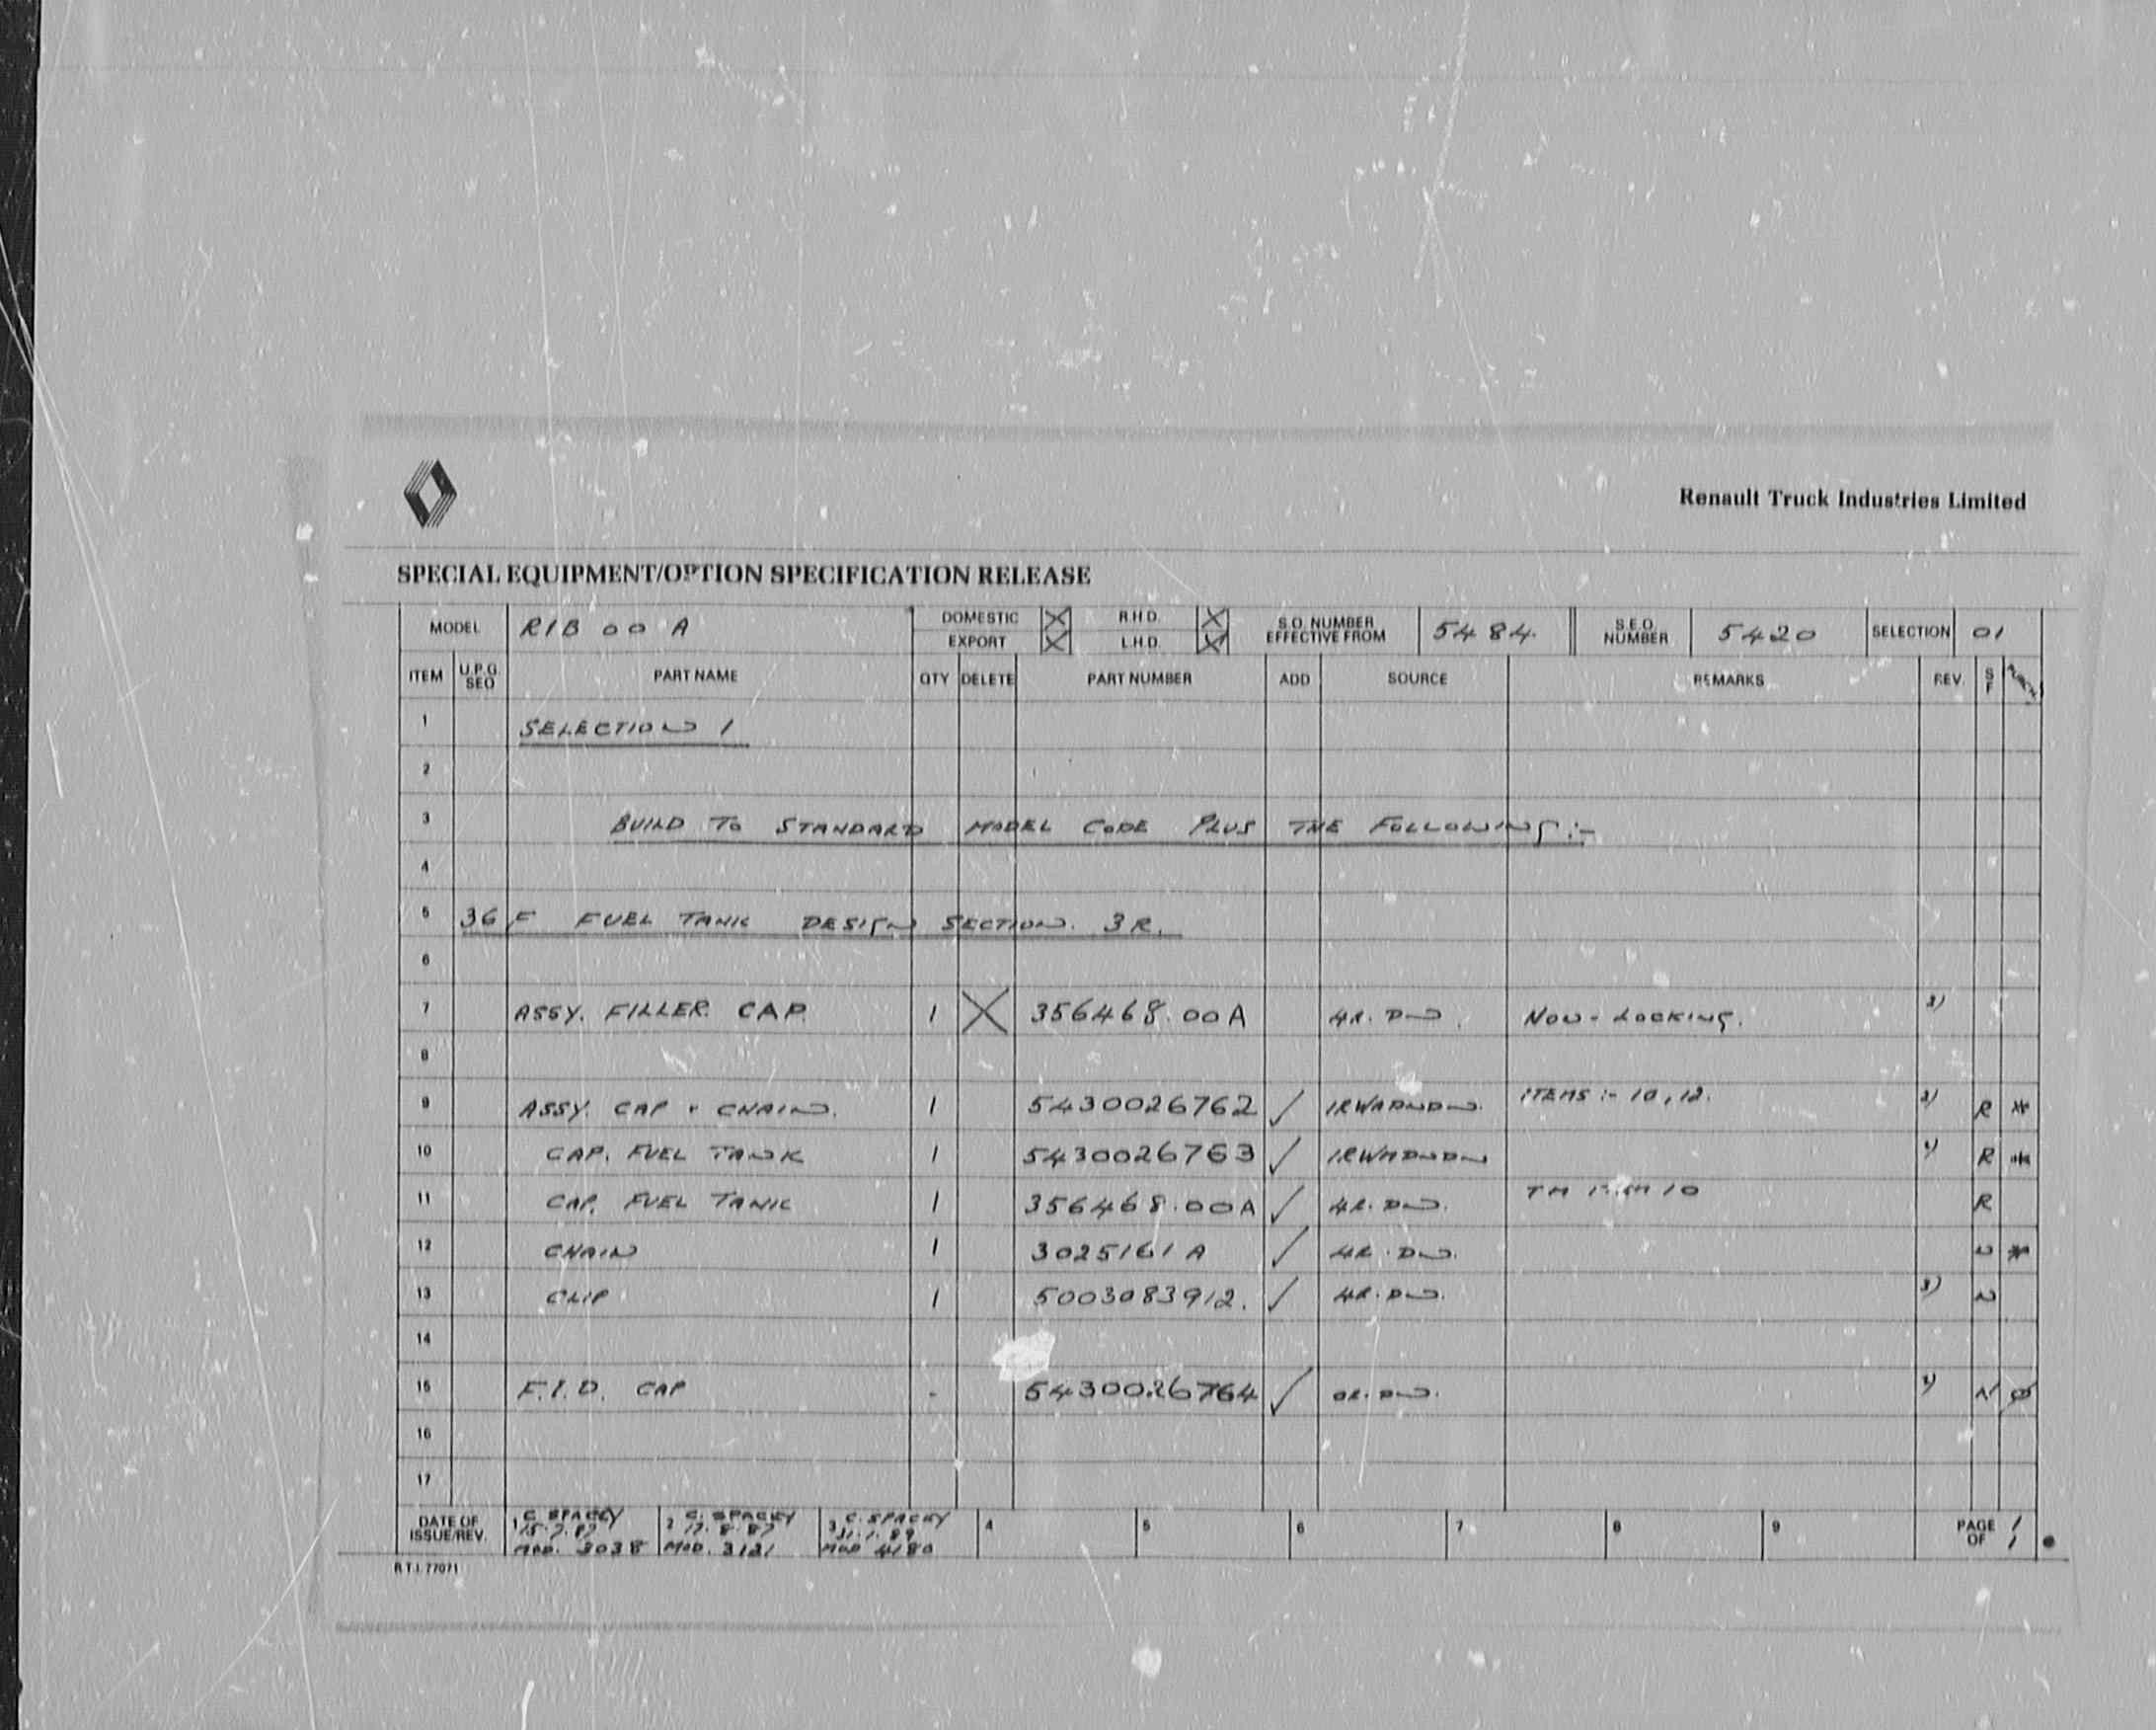 Renault Truck Industries Limited
SPECIAL EQUIPMENT/OPTION SPECIFICATION RELEASE
MODEL R1B 00 A DOMESTIC X R.H.D. X S.O. NUMBER EFFECTIVE FROM 5484. S.E.O. NUMBER 5420 SELECTION 01
EXPORT X L.H.D. X
ITEM U.P.G. SEQ PART NAME QTY DELETE PART NUMBER ADD SOURCE REMARKS REV. S F
1 SELECTION 1
2
3 BUILD TO STANDARD MODEL CODE PLUS THE FOLLOWING :-
4
5 36 F FUEL TANK DESIGN SECTION. 3R.
6
7 ASSY. FILLER CAP. 1 X 356468.00A 4R. DN. NON-LOCKING. 3)
8
9 ASSY. CAP + CHAIN. 1 5430026762 ✓ ITEMS :- 10, 12. R *
10 CAP. FUEL TANK 1 5430026763 ✓ R *
11 CAP. FUEL TANK 1 356468.00A ✓ 4R. DN. R
12 CHAIN 1 3025161A ✓ 4R. DN. N *
13 CLIP 1 5003083912. ✓ 4R. DN. 3) N
14
15 F.I.D. CAP - 5430026764 ✓ 0R. DN. N Ø
16
17
DATE OF ISSUE/REV. 1 C SPACEY 15.7.87 MOD. 3038 2 C. SPACEY 17.8.87 MOD. 3121 3 C. SPACEY 31.1.89 MOD 4180 4 5 6 7 8 9 PAGE 1 OF 1
R.T.I. 77071